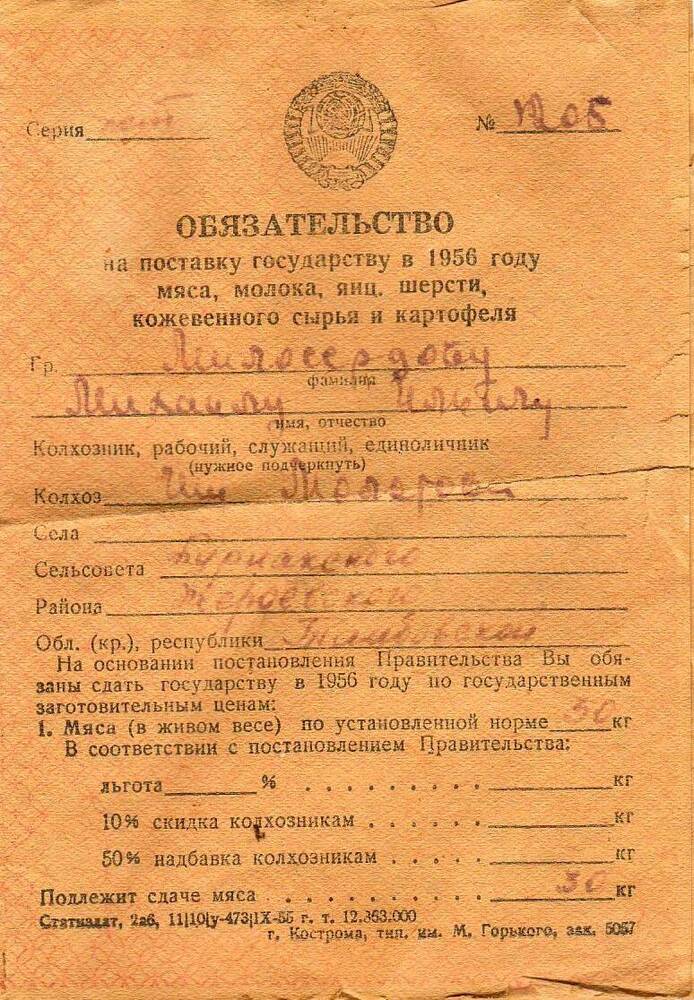 Серия
№ 1205
ОБЯЗАТЕЛЬСТВО
на поставку государству в 1956 году
мяса, молока, яиц. шерсти,
кожевенного сырья и картофеля
Гр. Милосердову
фамилия
Михаилу Ильичу
имя, отчество
Колхозник, рабочий, служащий, единоличник
(нужное подчеркнуть)
Колхоз Им Молотова
Села
Сельсовета Бурнакского
Района Жердевского
Обл. (кр.), республики Тамбовской
На основании постановления Правительства Вы обя-
заны сдать государству в 1956 году по государственным
заготовительным ценам:
1. Мяса (в живом весе) по установленной норме 30 кг
В соответствии с постановлением Правительства:
льгота % . . . . . . . . . . кг
10% скидка колхозникам . . . . . . кг
50% надбавка колхозникам . . . . . кг
Подлежит сдаче мяса . . . . . . . . . . . 30 кг
Статиздат, 2аб, 11|10|у-473|IX-55 г. т. 12.363.000
г. Кострома, тип. им. М. Горького, зак. 5057